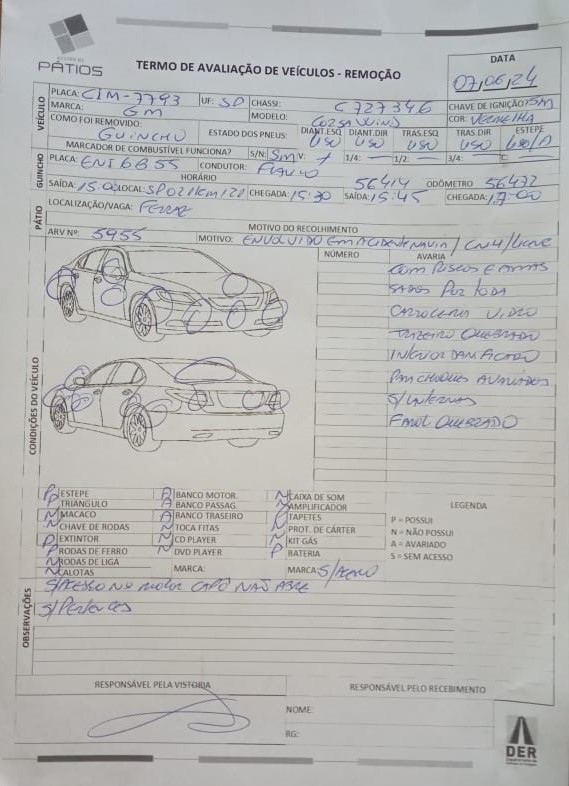 PÁTIOS
TERMO DE AVALIAÇÃO DE VEÍCULOS - REMOÇÃO
DATA
07/06/24
VEÍCULO
PLACA: CIM-7793 UF: SP CHASSI: C727346 CHAVE DE IGNIÇÃO? SIM
MARCA: GM MODELO: CORSA WIND COR: VERMELHA
COMO FOI REMOVIDO: GUINCHO ESTADO DOS PNEUS: DIANT.ESQ USO DIANT.DIR USO TRAS.ESQ USO TRAS.DIR USO ESTEPE USO
MARCADOR DE COMBUSTÍVEL FUNCIONA? S/N: Sim V: 1/4: 1/2: 3/4: C:
GUINCHO
PLACA: ENI6B55 CONDUTOR: FLAVIO
HORÁRIO 56414 ODÔMETRO 56472
SAÍDA: 15:00 LOCAL: SP021KM121 CHEGADA: 15:30 SAÍDA: 15:45 CHEGADA: 17:00
PÁTIO
LOCALIZAÇÃO/VAGA: FERRAZ
MOTIVO DO RECOLHIMENTO
ARV Nº: 5955 MOTIVO: ENVOLVIDO EM ACIDENTE NA VIA
CONDIÇÕES DO VEÍCULO
NÚMERO AVARIA
COM RISCOS E AMAS
SADOS POR TODA
CARROCERIA VIDRO
TRAZEIRO QUEBRADO
INTERIOR DANIFICADO
PARCHOQUES AVARIADOS
S/INTERNAS
FAROL QUEBRADO
P ESTEPE A BANCO MOTOR. N CAIXA DE SOM
TRIÂNGULO A BANCO PASSAG. N AMPLIFICADOR LEGENDA
N MACACO A BANCO TRASEIRO P TAPETES P = POSSUI
N CHAVE DE RODAS N TOCA FITAS N PROT. DE CÁRTER N = NÃO POSSUI
P EXTINTOR N CD PLAYER N KIT GÁS A = AVARIADO
P RODAS DE FERRO N DVD PLAYER P BATERIA S = SEM ACESSO
N RODAS DE LIGA MARCA: MARCA: S/ACESSO
N CALOTAS
OBSERVAÇÕES
S/ACESSO NO MOTOR CAPÔ NÃO ABRE
S/PERTENCES
RESPONSÁVEL PELA VISTORIA RESPONSÁVEL PELO RECEBIMENTO
NOME:
RG:
DER